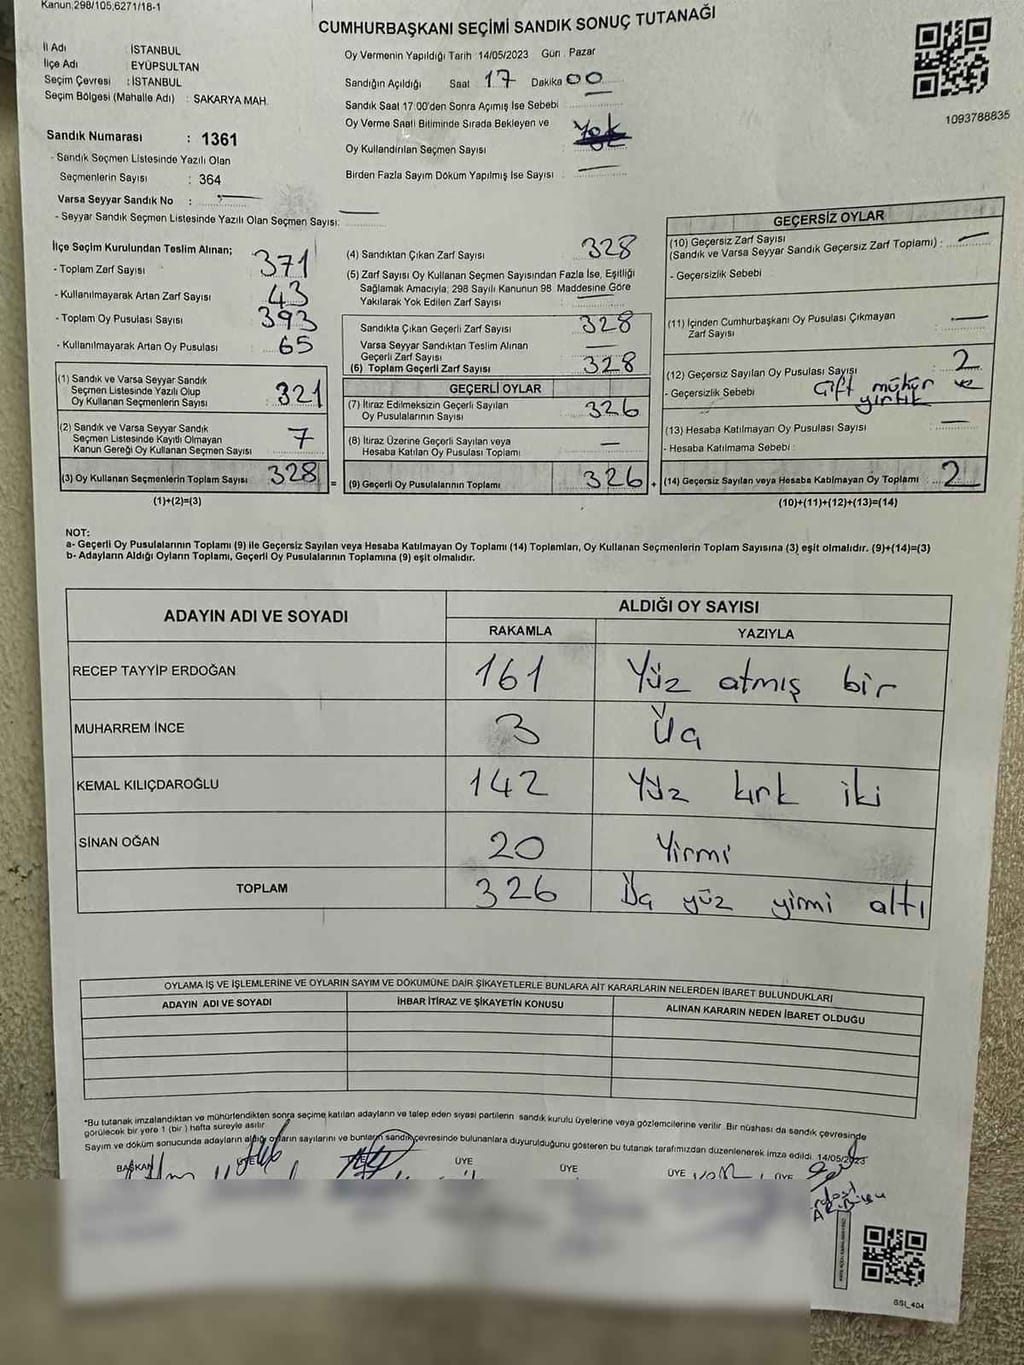 Kanun,298/105,6271/18-1
CUMHURBAŞKANI SEÇİMİ SANDIK SONUÇ TUTANAĞI
İl Adı İSTANBUL
İlçe Adı EYÜPSULTAN
Seçim Çevresi : İSTANBUL
Seçim Bölgesi (Mahalle Adı) : SAKARYA MAH.
Sandık Numarası : 1361
- Sandık Seçmen Listesinde Yazılı Olan
Seçmenlerin Sayısı : 364
Varsa Seyyar Sandık No :
- Seyyar Sandık Seçmen Listesinde Yazılı Olan Seçmen Sayısı:
Oy Vermenin Yapıldığı Tarih 14/05/2023 Gün : Pazar
Sandığın Açıldığı Saat 17 Dakika 00
Sandık Saat 17:00'den Sonra Açımış İse Sebebi
Oy Verme Saati Bitiminde Sırada Bekleyen ve
Oy Kullandırılan Seçmen Sayısı Yok
Birden Fazla Sayım Döküm Yapılmış İse Sayısı :
1093788835
İlçe Seçim Kurulundan Teslim Alınan;
- Toplam Zarf Sayısı 371
- Kullanılmayarak Artan Zarf Sayısı 43
- Toplam Oy Pusulası Sayısı 393
- Kullanılmayarak Artan Oy Pusulası 65
(1) Sandık ve Varsa Seyyar Sandık
Seçmen Listesinde Yazılı Olup
Oy Kullanan Seçmenlerin Sayısı 321
(2) Sandık ve Varsa Seyyar Sandık
Seçmen Listesinde Kayıtlı Olmayan
Kanun Gereği Oy Kullanan Seçmen Sayısı 7
(3) Oy Kullanan Seçmenlerin Toplam Sayısı 328 =
(1)+(2)=(3)
(4) Sandıktan Çıkan Zarf Sayısı 328
(5) Zarf Sayısı Oy Kullanan Seçmen Sayısından Fazla İse, Eşitliği
Sağlamak Amacıyla, 298 Sayılı Kanunun 98. Maddesine Göre
Yakılarak Yok Edilen Zarf Sayısı
Sandıkta Çıkan Geçerli Zarf Sayısı 328
Varsa Seyyar Sandıktan Teslim Alınan
Geçerli Zarf Sayısı
(6) Toplam Geçerli Zarf Sayısı 328
GEÇERLİ OYLAR
(7) İtiraz Edilmeksizin Geçerli Sayılan
Oy Pusulalarının Sayısı 326
(8) İtiraz Üzerine Geçerli Sayılan veya
Hesaba Katılan Oy Pusulası Toplamı
(9) Geçerli Oy Pusulalarının Toplamı 326 +
GEÇERSİZ OYLAR
(10) Geçersiz Zarf Sayısı
(Sandık ve Varsa Seyyar Sandık Geçersiz Zarf Toplamı) :
- Geçersizlik Sebebi
(11) İçinden Cumhurbaşkanı Oy Pusulası Çıkmayan
Zarf Sayısı
(12) Geçersiz Sayılan Oy Pusulası Sayısı 2
- Geçersizlik Sebebi Çift mühür ve
yırtık
(13) Hesaba Katılmayan Oy Pusulası Sayısı
- Hesaba Katılmama Sebebi :
(14) Geçersiz Sayılan veya Hesaba Katılmayan Oy Toplamı 2
(10)+(11)+(12)+(13)=(14)
NOT:
a- Geçerli Oy Pusulalarının Toplamı (9) ile Geçersiz Sayılan veya Hesaba Katılmayan Oy Toplamı (14) Toplamları, Oy Kullanan Seçmenlerin Toplam Sayısına (3) eşit olmalıdır. (9)+(14)=(3)
b- Adayların Aldığı Oyların Toplamı, Geçerli Oy Pusulalarının Toplamına (9) eşit olmalıdır.
ADAYIN ADI VE SOYADI ALDIĞI OY SAYISI
RAKAMLA YAZIYLA
RECEP TAYYİP ERDOĞAN 161 Yüz atmış bir
MUHARREM İNCE 3 Üç
KEMAL KILIÇDAROĞLU 142 Yüz kırk iki
SİNAN OĞAN 20 Yirmi
TOPLAM 326 Üç yüz yirmi altı
OYLAMA İŞ VE İŞLEMLERİNE VE OYLARIN SAYIM VE DÖKÜMÜNE DAİR ŞİKAYETLERLE BUNLARA AİT KARARLARIN NELERDEN İBARET BULUNDUKLARI
ADAYIN ADI VE SOYADI İHBAR İTİRAZ VE ŞİKAYETİN KONUSU ALINAN KARARIN NEDEN İBARET OLDUĞU
*Bu tutanak imzalandıktan ve mühürlendikten sonra seçime katılan adayların ve talep eden siyasi partilerin sandık kurulu üyelerine veya gözlemcilerine verilir. Bir nüshası da sandık çevresinde
görülecek bir yere 1 (bir) hafta süreyle asılır.
Sayım ve döküm sonucunda adayların aldığı oyların sayılarını ve bunların sandık çevresinde bulunanlara duyurulduğunu gösteren bu tutanak tarafımızdan düzenlenerek imza edildi. 14/05/2023
BAŞKAN ÜYE ÜYE ÜYE ÜYE
SSI_404